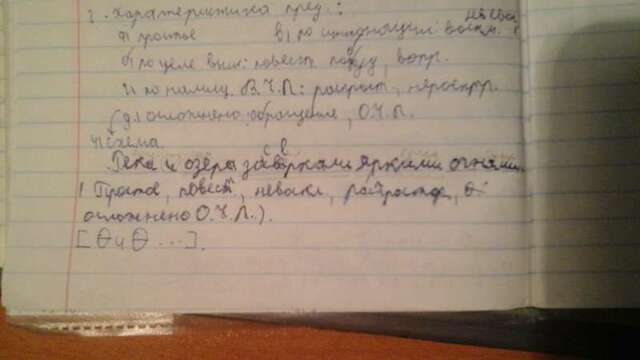 3. Характеристика пред.:
а) простое в) по интонации: воскл.
б) по цели выс.: повест, побуд, вопр.
г) по налич. В.Ч.П.: распрост, нераспр.
(д) осложнено: обращение, О.Ч.П.
4) Схема.
Река и озера засверкали яркими огнями.
(Простое, повест, невоскл, распростр,
осложнено О.Ч.П.).
[ и ...].